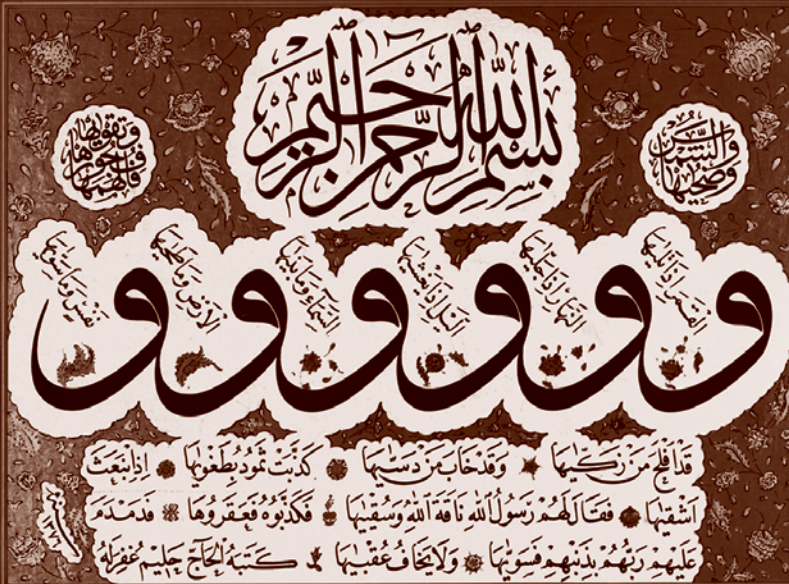 بسم الله الرحمن الرحيم
والشمس وضحيها
و القمر اذا تليها
و النهار اذا جليها
و اليل اذا يغشيها
و السماء وما بنيها
و الارض وما طحيها
و نفس وما سويها
فالهمها فجورها وتقويها
قد افلح من زكيها وقد خاب من دسيها كذبت ثمود بطغويها اذ انبعث
اشقيها فقال لهم رسول الله ناقة الله وسقيها فكذبوه فعقروها فدمدم
عليهم ربهم بذنبهم فسويها ولا يخاف عقبيها كتبه الحاج حليم غفرله